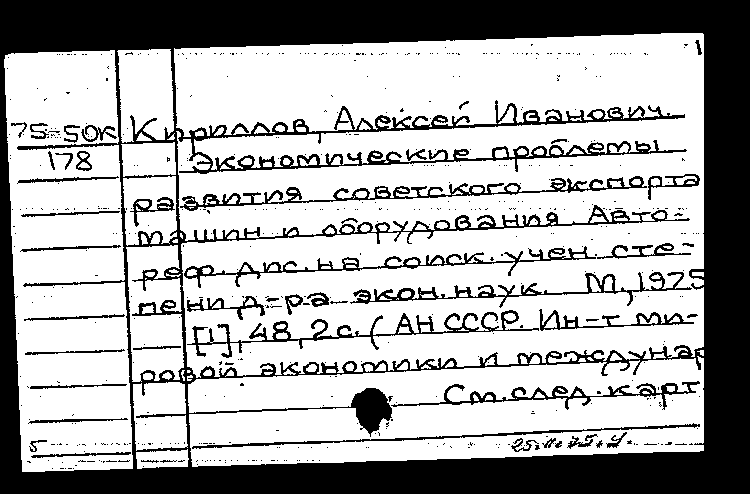 1
75-50к Кириллов, Алексей Иванович.
178 Экономические проблемы
развития советского экспорта
машин и оборудования. Авто-
реф. дис. на соиск. учен. сте-
пени д-ра экон. наук. М., 1975
[1], 48, 2 с. (АН СССР. Ин-т ми-
ровой экономики и междунар
См. след. карт
5